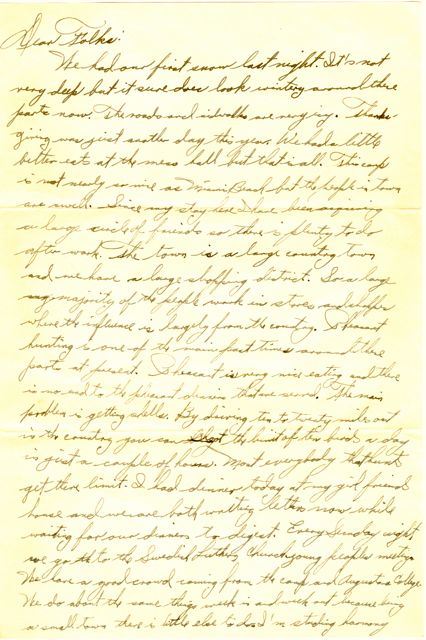 Dear Folks:
We had our first snow last night. It's not
very deep but it sure does look wintery around there
parts now. The roads and sidwalks are very icy. Thanks-
giving was just another day this year. We had a little
better eats at the mess hall but that's all. This camp
is not nearly so nice as Miami Beach but the people in town
are swell. Since my stay here I have been acquiring
a large circle of friends so there is plenty to do
after work. The town is a large country town
and we have a large shopping district. So a large
majority of the people work in stores and shoppes
where the influence is largely from the country. Pheasant
hunting is one of the main past times around there
parts at present. Pheasant is very nice eating and there
is no end to the pheasant dinners that are served. The main
problem is getting shells. By driving ten to twenty miles out
in the country you can shoot the limit of ten birds a day
in just a couple of hours. Most everybody that hunts
get there limit. I had dinner today at my girl friends
house and we are both writting letters now while
waiting for our dinners to digest. Every Sunday night
we go to the Swedish Luthern Church young peoples meetings.
We have a good crowd coming from the camp and Augustana College.
We do about the same things week in and week out because being
a small town there is little else to do. I'm studing harmony